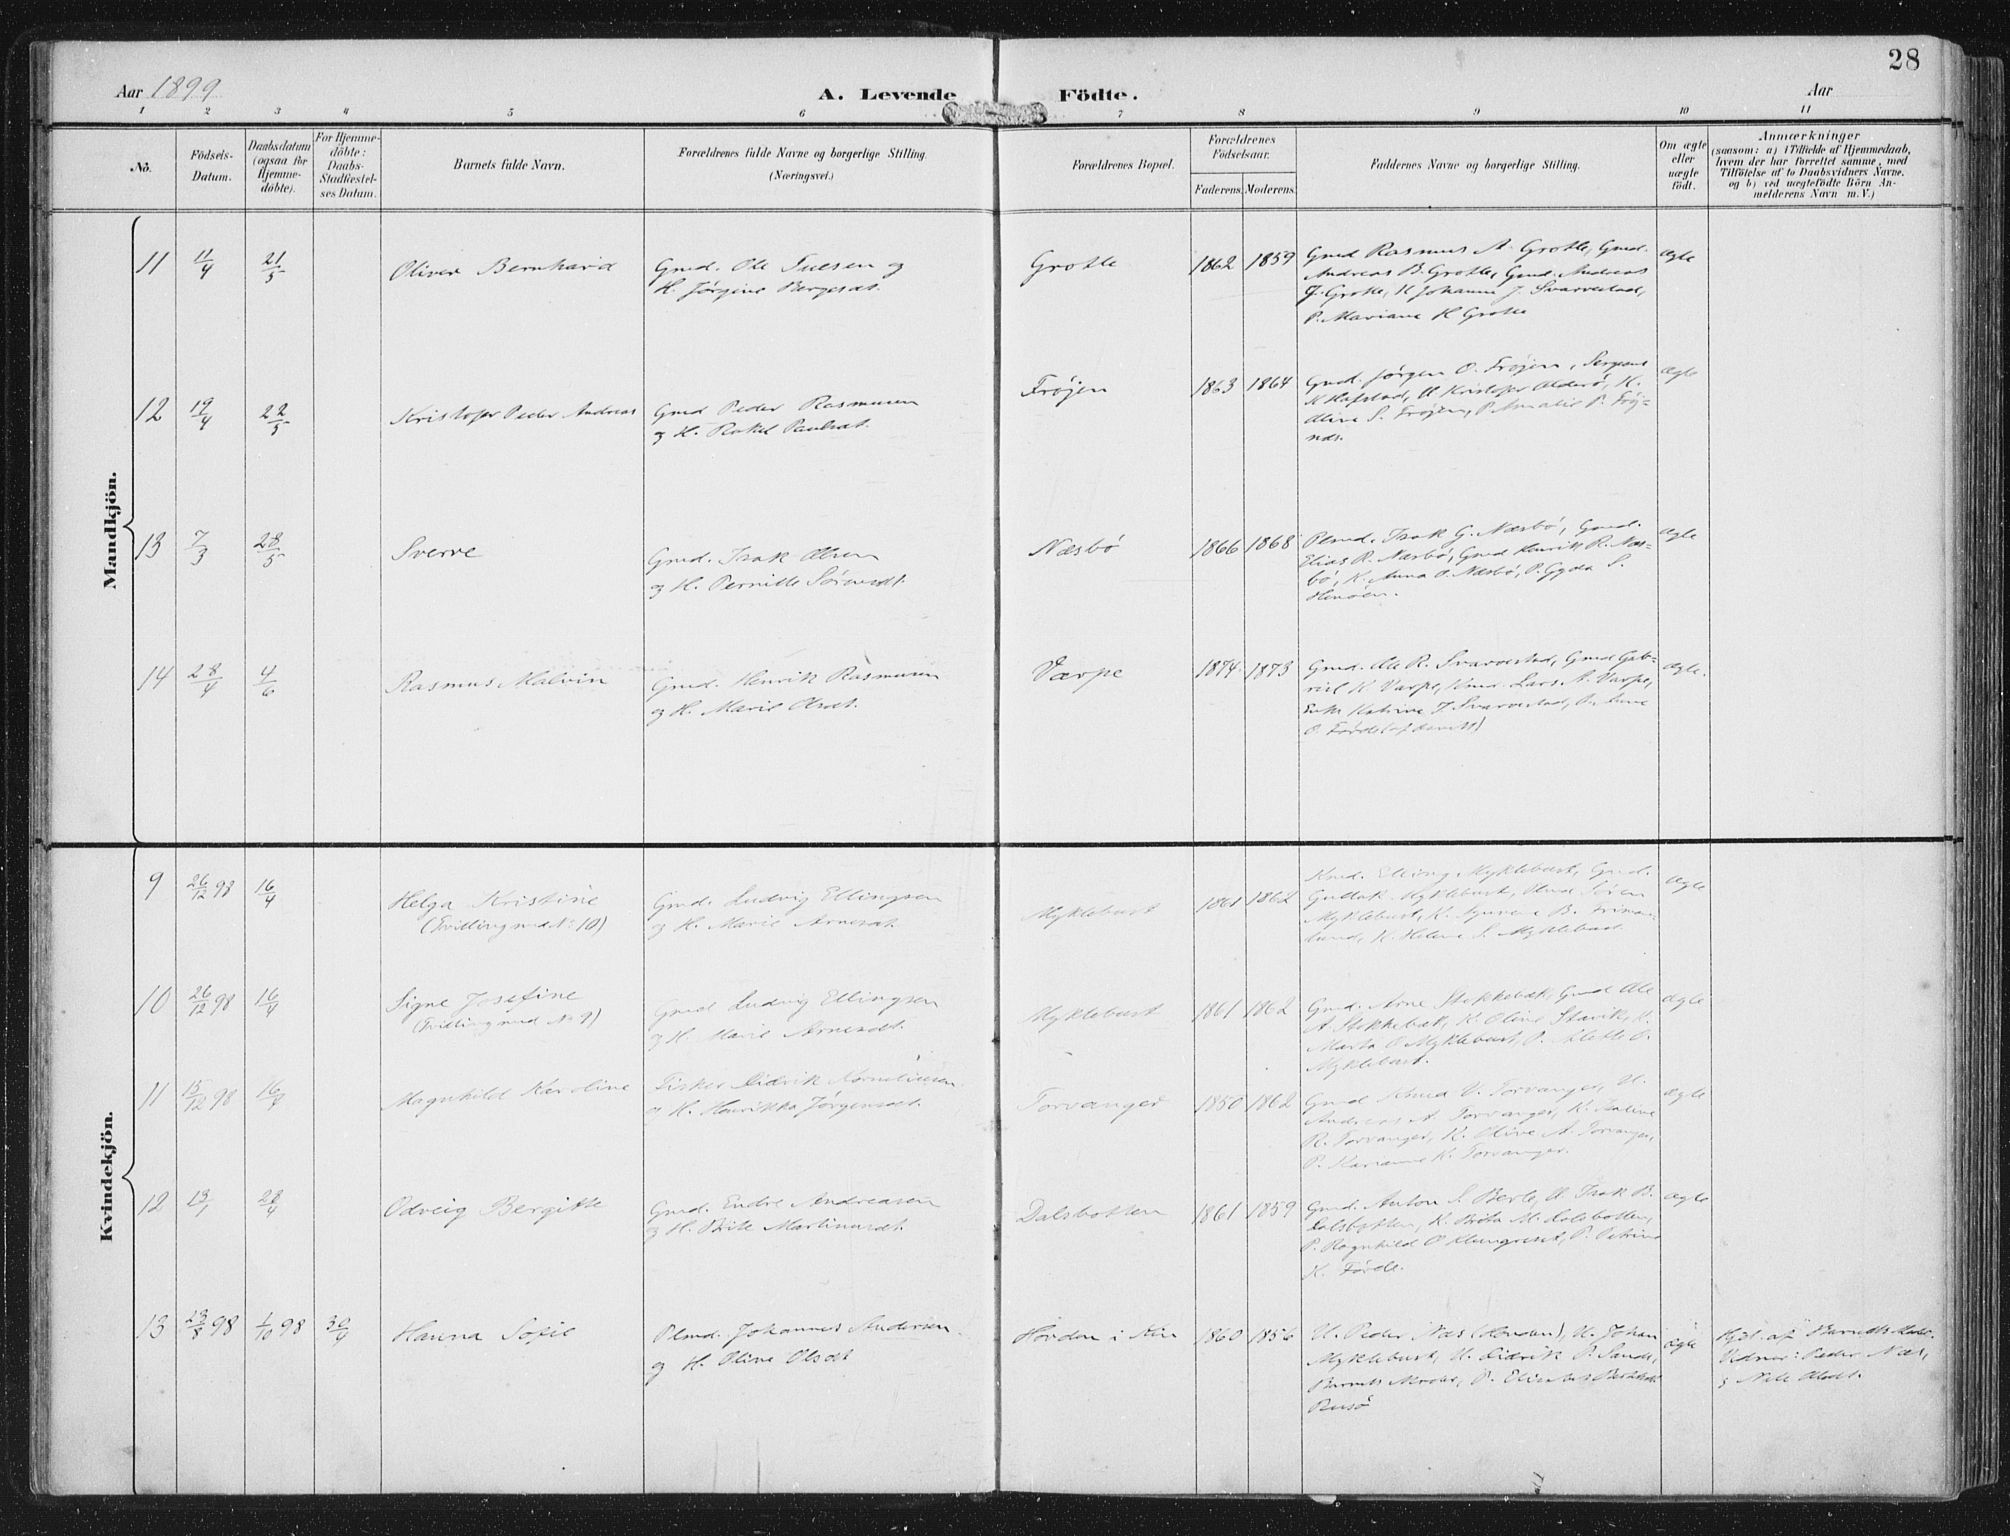 28
Aar 1899
A. Levende Födte.
Aar
1 2 3 4 5 6 7 8 9 10 11
No.
Födsels-
Datum.
Daabsdatum
(ogsaa for
Hjemme-
döbte).
For Hjemme-
döbte:
Daabs-
Stadfæstel-
ses Datum.
Barnets fulde Navn.
Forældrenes fulde Navne og borgerlige Stilling
(Næringsvei.)
Forældrenes Bopæl.
Forældrenes
Födselsaar.
Faderens.
Moderens.
Faddernes Navne og borgerlige Stilling.
Om ægte
eller
uægte
födt.
Anmærkninger
(saasom: a) i Tilfælde af Hjemmedaab,
hvem der har forrettet samme, med
Tilföielse af to Daabsvidners Navne.
og b) ved uægtefödte Börn An-
melderens Navn m.V.)
Mandkjön.
11 11/4 21/5 Oliver Bernhard
Gmd. Ole
og
H. Jørgine Bergesdt.
Grotle 1862 1859
Gmd Rasmus A. Grotle, Gmd.
Andreas B. Grotle, Gmd. Andreas
J. Grotle, K Johanne J. Svarvestad,
P. Mariane H Grotle
ægte
12 19/4 22/5 Kristofer Peder Andreas
Gmd Peder Rasmussen
og H. Rakel Paulsdt.
Frøjen 1863 1864
Gmd. Jørgen O. Frøjen, Sergeant
K Hafstad, U Kristofer Olderø, K.
Oline S. Frøjen, P Amalie P. Frøj-
næs.
ægte
13 7/3 28/5 Sverre
Gmd. Isak Olsen
og H. Pernille Sørensdt.
Næsbø 1866 1868
Plsmd. Isak G. Næsbø, Gmd.
Elias R. Næsbø, Gmd Henrik R. Næs-
bø, K. Anna O. Næsbø, P. Gyda S.
Henøen.
ægte
14 28/4 4/6 Rasmus Malvin
Gmd. Henrik Rasmussen
og H. Marie Olsdt.
Varpe 1874 1873
Gmd. Ole R. Svarvestad, Gmd Gab-
riel K. Varpe, Kmd. Lars A. Varpe,
Enke Katrine J Svarvestad, P.
O. Førde
ægte.
Kvindekjön.
9 26/12 98 16/4 Helga Kristine
(Tvilling med No 10)
Gmd. Ludvig Ellingsen
og H. Marie Arnesdt.
Myklebust 1861 1862
Kmd. Elling Myklebust, Gmd.
Gullak Myklebust, Søren
Myklebust, K. B.
K. Helene S. Myklebust
ægte
10 26/12 98 16/4 Signe Josefine
(Tvilling med No 9)
Gmd Ludvig Ellingsen
og H. Marie Arnesdt.
Myklebust 1861 1862
Gmd. Arne Stokkebæk, Gmd Ole
A Stokkebæk, K. Oline Stavik, K.
Marta O Myklebust, P. Alette O.
Myklebust.
ægte
11 15/12 98 16/4 Magnhild Karoline
Fisker Didrik Korneliussen
og H. Henrikka Jørgensdt.
Torvanger 1850 1862
Gmd Knud V. Torvanger, U.
Andreas A Torvanger, K.
R. Torvanger, K. Oline A. Torvanger,
P. Karianne K. Torvanger.
ægte
12 13/1 23/4 Odveig Bergitte
Gmd. Endre Andreassen
og H. Brite Martinusdt.
Dalsbotten 1861 1859
Gmd. Anton S. Berle, U Isak B.
Dalsbotten, K. Brita M. Dalsbotten,
P. Ragnhild O P. Petrine
K. Førde.
ægte
13 23/8 98 1/10 98 30/4 Hanna Sofie
Plsmd. Johannes Andersen
og H. Oline Olsdt
Hovden i Kin 1860 1856
U. Peder Næs (Hovden), U. Johan
Myklebust, U. Didrik P. Sande,
Barnets Moder, P.
ægte
Hjd. af Barnets
Vidner: Peder Næs,